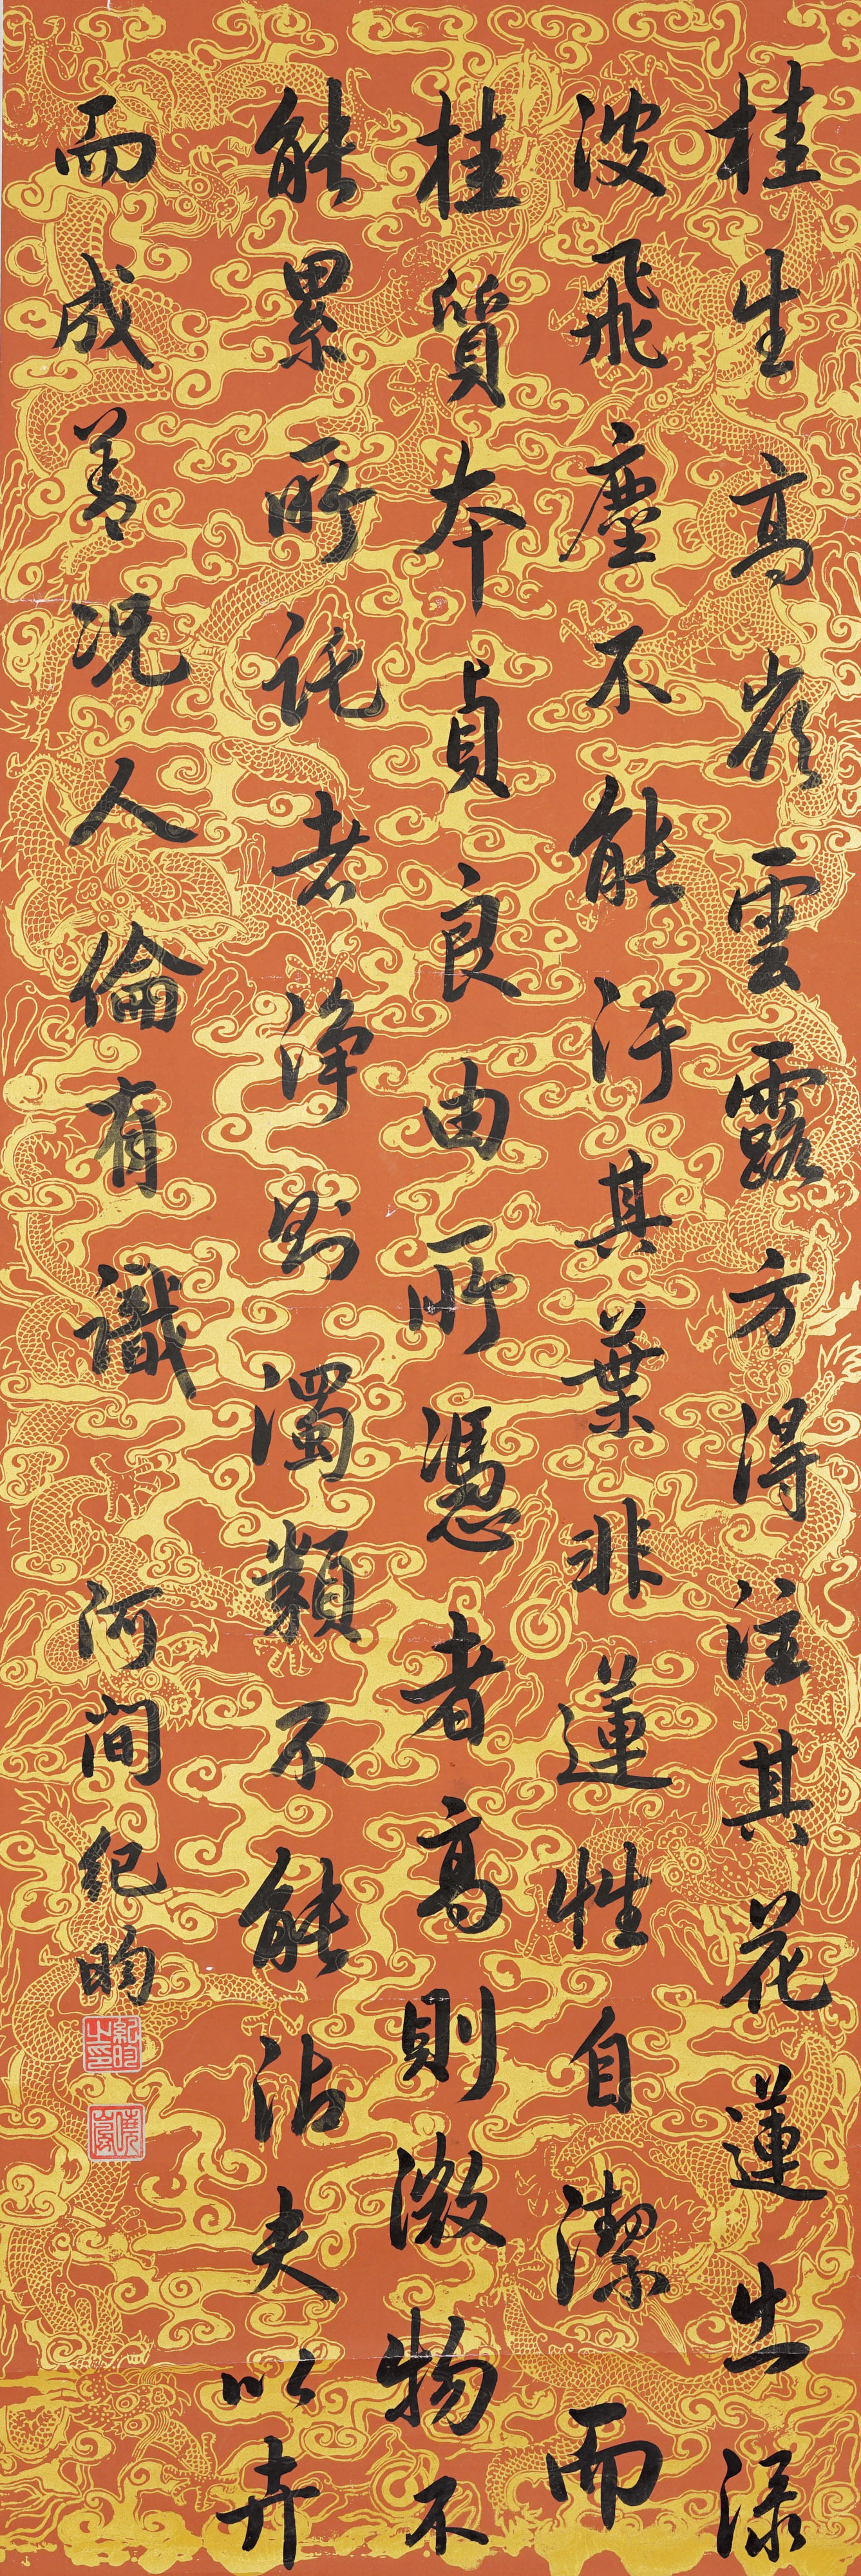 桂生高嶺雲露方得注其花蓮出淥
波飛塵不能汙其葉非蓮性自潔而
桂質本貞良由所憑者高則微物不
能累所託者淨則濁類不能沾夫以卉
而成善况人倫有識
河間紀昀
紀昀之印
曉嵐